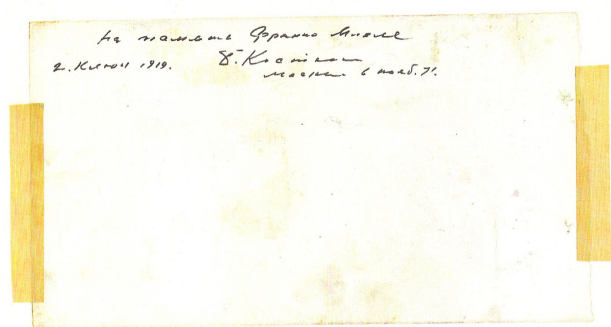 на память Франко Миеле
г. Клюи 1919. В. Костин
Москва 6 нояб. 71.